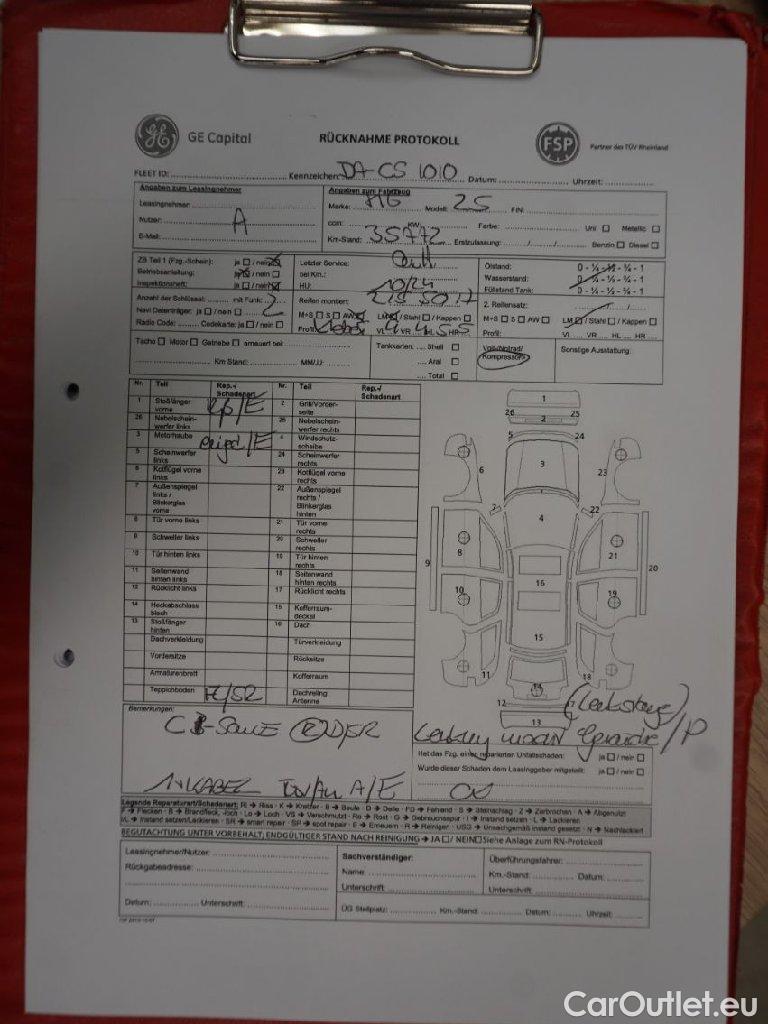 GE Capital RÜCKNAHME PROTOKOLL FSP Partner des TÜV Rheinland
FLEET ID: Kennzeichen: DA-CS 1010 Datum: Uhrzeit:
Angaben zum Leasingnehmer
Leasingnehmer:
Nutzer: A
E-Mail:
Angaben zum Fahrzeug
Marke: MG Modell: ZS FIN:
ccm: KW: Farbe: Uni Metallic
Km-Stand: 35772 Erstzulassung: Benzin Diesel
ZB Teil 1 (Fzg.-Schein): ja / nein
Betriebsanleitung: ja / nein
Inspektionsheft: ja / nein
Letzter Service:
bei Km.:
HU: 10/24
Ölstand: 0 - ¼ - ½ - ¾ - 1
Wasserstand: 0 - ¼ - ½ - ¾ - 1
Füllstand Tank: 0 - ¼ - ½ - ¾ - 1
Anzahl der Schlüssel: mit Funk: 2
Navi Datenträger: ja / nein
Radio Code: Codekarte: ja / nein
Reifen montiert: 215 50 17
M+S S AW LM / Stahl / Kappen
Profil: VL 4 VR 4 HL 5 HR 5
2. Reifensatz:
M+S S AW LM / Stahl / Kappen
Profil: VL VR HL HR
Tacho Motor Getriebe erneuert bei:
Km Stand: MM/JJ:
Tankserien: Shell
Aral
Total
Voll-/Notrad/
Kompressor
Sonstige Ausstattung:
Nr. Teil Rep.-/ Schadensart Nr. Teil Rep.-/ Schadensart
1 Stoßfänger vorne /E 2 Grill/Vorderseite
26 Nebelscheinwerfer links 25 Nebelscheinwerfer rechts
3 Motorhaube /E 4 Windschutzscheibe
5 Scheinwerfer links 24 Scheinwerfer rechts
6 Kotflügel vorne links 23 Kotflügel vorne rechts
7 Außenspiegel links / Blinkerglas vorne 22 Außenspiegel rechts / Blinkerglas hinten
8 Tür vorne links 21 Tür vorne rechts
9 Schweller links 20 Schweller rechts
10 Tür hinten links 19 Tür hinten rechts
11 Seitenwand hinten links 18 Seitenwand hinten rechts
12 Rücklicht links 17 Rücklicht rechts
14 Heckabschlussblech 15 Kofferraumdeckel
13 Stoßfänger hinten 16 Dach
Dachverkleidung Türverkleidung
Vordersitze Rücksitze
Armaturenbrett Kofferraum
Teppichboden Dachreling Antenne
Bemerkungen:
1x KABEL A/E
Hat das Fzg. einen reparierten Unfallschaden: ja / nein
Wurde dieser Schaden dem Leasinggeber mitgeteilt: ja / nein
Legende Reparaturart/Schadenart: RI → Riss · K → Kratzer · B → Beule · D → Delle · FD → Fehlend · S → Steinschlag · Z → Zerbrochen · A → Abgenutzt
F → Flecken · B → Brandfleck, -loch · Lo → Loch · VS → Verschmutzt · Ro → Rost · G → Gebrauchsspur · I → Instand setzen · L → Lackieren
I/L → Instand setzen/Lackieren · SR → smart repair · SP → spot repair · E → Erneuern · R → Reinigen · USG → Unsachgemäß instand gesetzt · N → Nachlackiert
BEGUTACHTUNG UNTER VORBEHALT, ENDGÜLTIGER STAND NACH REINIGUNG → JA / NEIN Siehe Anlage zum RN-Protokoll
Leasingnehmer/Nutzer:
Rückgabeadresse:
Datum: Unterschrift:
Sachverständiger:
Name:
Unterschrift:
Überführungsfahrer:
Km.-Stand: Datum:
Unterschrift:
ÜG Stellplatz: Km.-Stand: Datum: Uhrzeit:
CarOutlet.eu